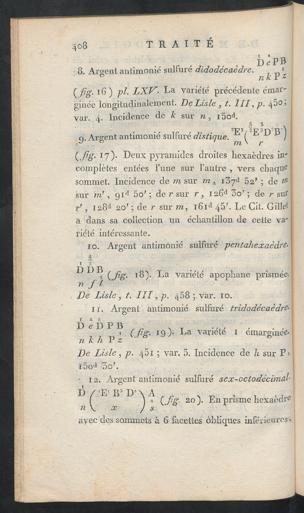 408 TRAITÉ
8. Argent antimonié sulfuré didodécaèdre. D e P B
n k P z
(fig. 16) pl. LXV. La variété précédente émar-
ginée longitudinalement. De Lisle, t. III, p. 450;
var. 4. Incidence de k sur n, 150d.
9. Argent antimonié sulfuré distique. E³ (E³ D B)
m r
(fig. 17). Deux pyramides droites hexaèdres in-
complètes entées l'une sur l'autre, vers chaque
sommet. Incidence de m sur m, 137d 52'; de m
sur m', 91d 50'; de r sur r, 126d 30'; de r sur
r', 128d 20'; de r sur m, 161d 45'. Le Cit. Gillet
a dans sa collection un échantillon de cette va-
riété intéressante.
10. Argent antimonié sulfuré pentahexaèdre.
D D B
n f t (fig. 18). La variété apophane prismée.
De Lisle, t. III, p. 458; var. 10.
11. Argent antimonié sulfuré tridodécaèdre.
D e D P B
n k h P z (fig. 19). La variété 1 émarginée.
De Lisle, p. 451; var. 5. Incidence de h sur P,
150d 30'.
12. Argent antimonié sulfuré sex-octodécimal.
D (E B D) A
n x s (fig. 20). En prisme hexaèdre
avec des sommets à 6 facettes obliques inférieures